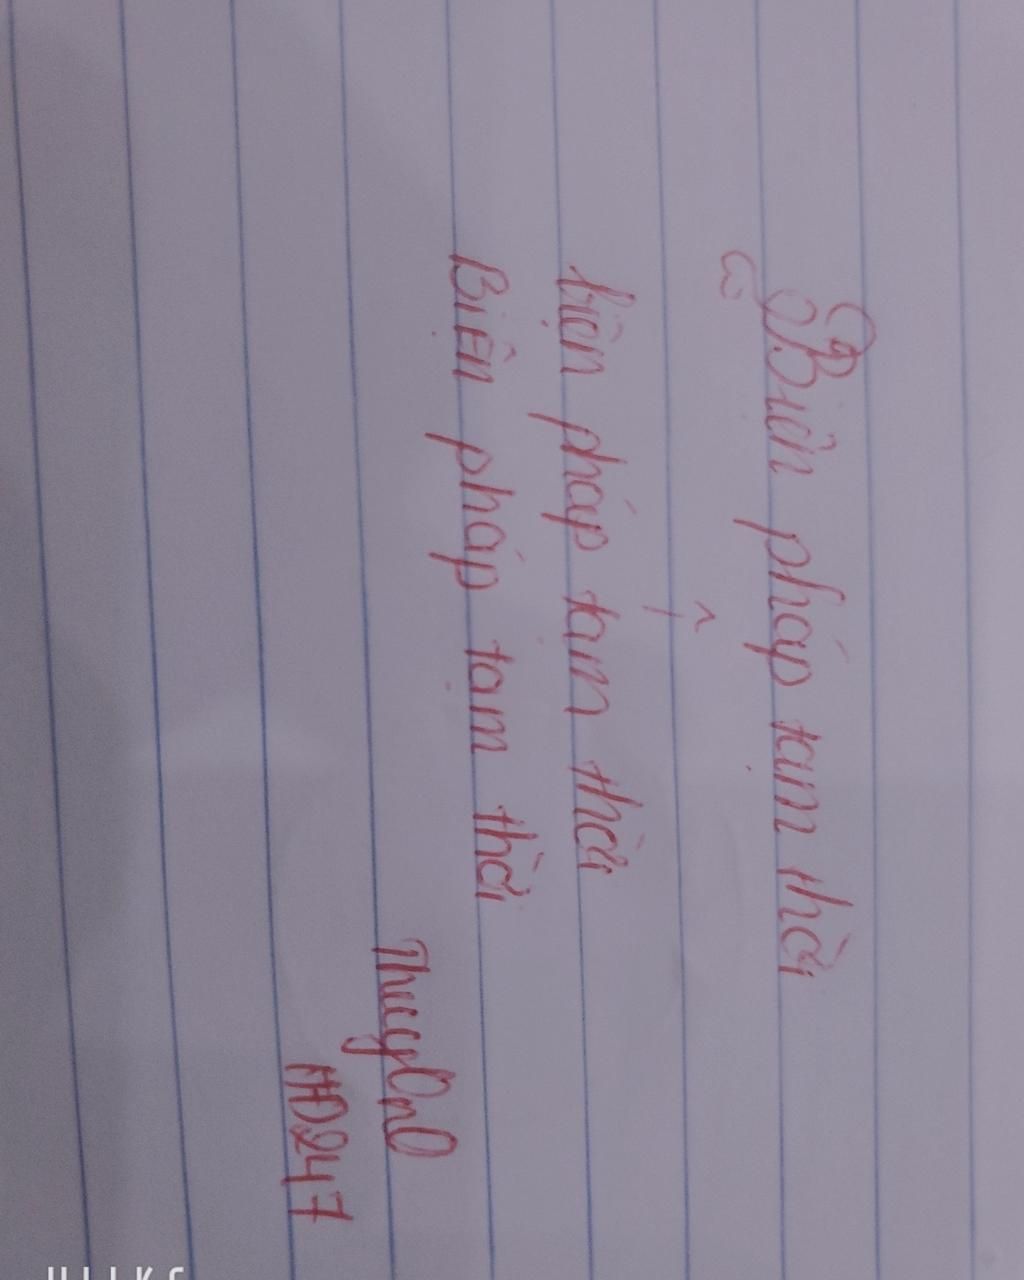 Biện pháp tạm thời
biện pháp tạm thời
Biện pháp tạm thời
HĐ247